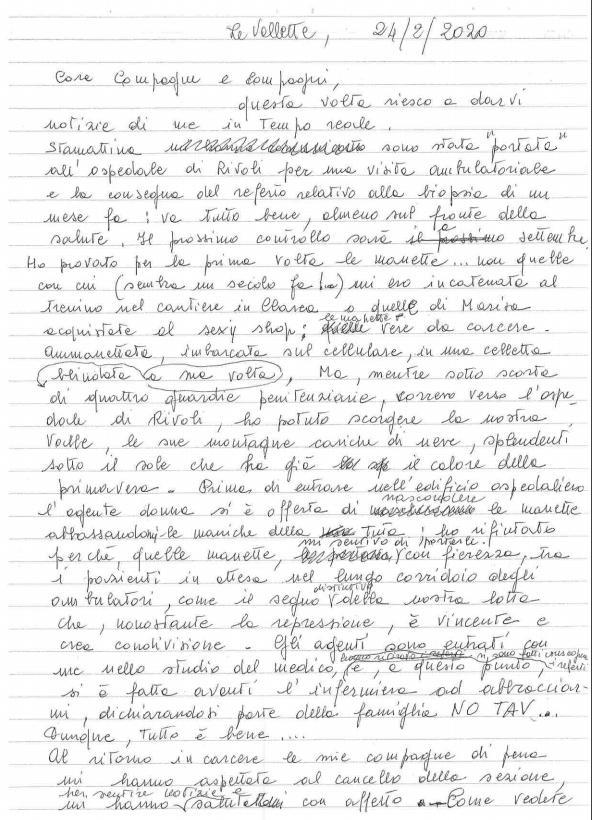 Le Vallette, 24/2/2020
Care Compagne e Compagni,
questa volta riesco a darvi
notizie di me in tempo reale.
Stamattina sono stata "portata"
all'ospedale di Rivoli per una visita ambulatoriale
e la consegna del referto relativo alla biopsia di un
mese fa: va tutto bene, almeno sul fronte della
salute. Il prossimo controllo sarà il prossimo settembre.
Ho provato per la prima volta le manette... non quelle
con cui (sembra un secolo fa) mi ero incatenata al
trenino nel cantiere in Clarea o quelle di Marisa
acquistate al sexy shop; le manette quelle vere da carcere.
Ammanettata, imbarcata sul cellulare, in una celletta
blindata a sua volta, Ma, mentre sotto scorta
di quattro guardie penitenziarie, correvo verso l'ospe-
dale di Rivoli, ho potuto scorgere la nostra
Valle, le sue montagne cariche di neve, splendenti
sotto il sole che ha già il calore della
primavera. Prima di entrare nell'edificio ospedaliero
l'agente donna si è offerta di nascondere le manette
abbassandomi le maniche della tuta: ho rifiutato
perché, quelle manette, mi sentivo di portarle con fierezza, tra
i pazienti in attesa nel lungo corridoio degli
ambulatori, come il segno distintivo della nostra lotta
che, nonostante la repressione, è vincente e
crea condivisione. Gli agenti sono entrati con
me nello studio del medico, e, a questo punto,
si è fatta avanti l'infermiera ad abbracciar-
mi, dichiarandosi parte della famiglia NO TAV...
Dunque, tutto è bene....
Al ritorno in carcere le mie compagne di pena
mi hanno aspettata al cancello della sezione,
per sentire notizie e
mi hanno salutata con affetto. Come vedete